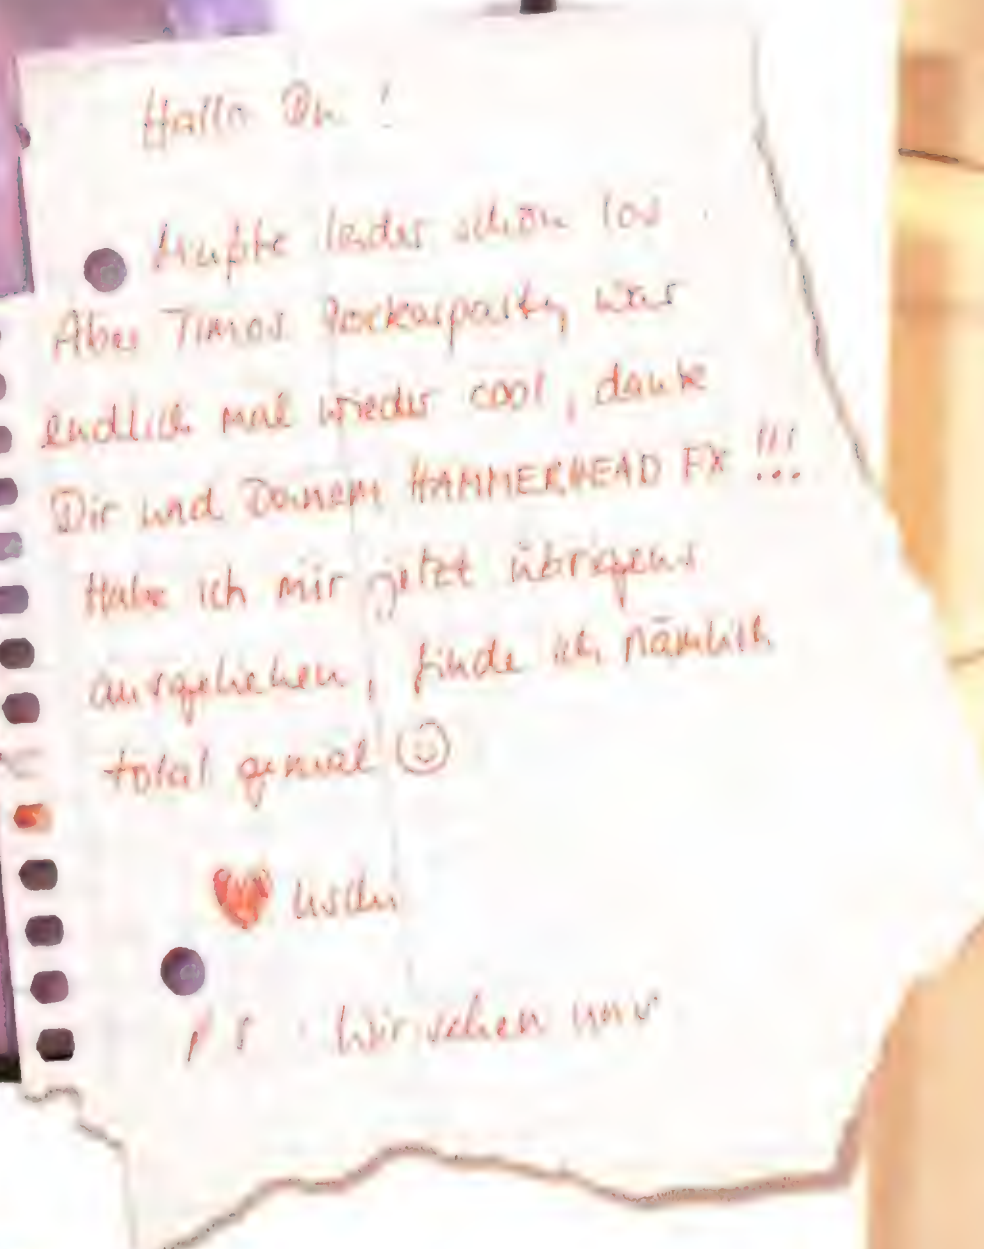 Hallo Du!
Mußte leider schon los.
Aber Timos Zockerparty war
endlich mal wieder cool, danke
Dir und Deinem HAMMERHEAD FX !!!
Habe ich mir jetzt übrigens
ausgeliehen, finde ich nämlich
total genial ☺
♥ Uschi
PS: Wir sehen uns